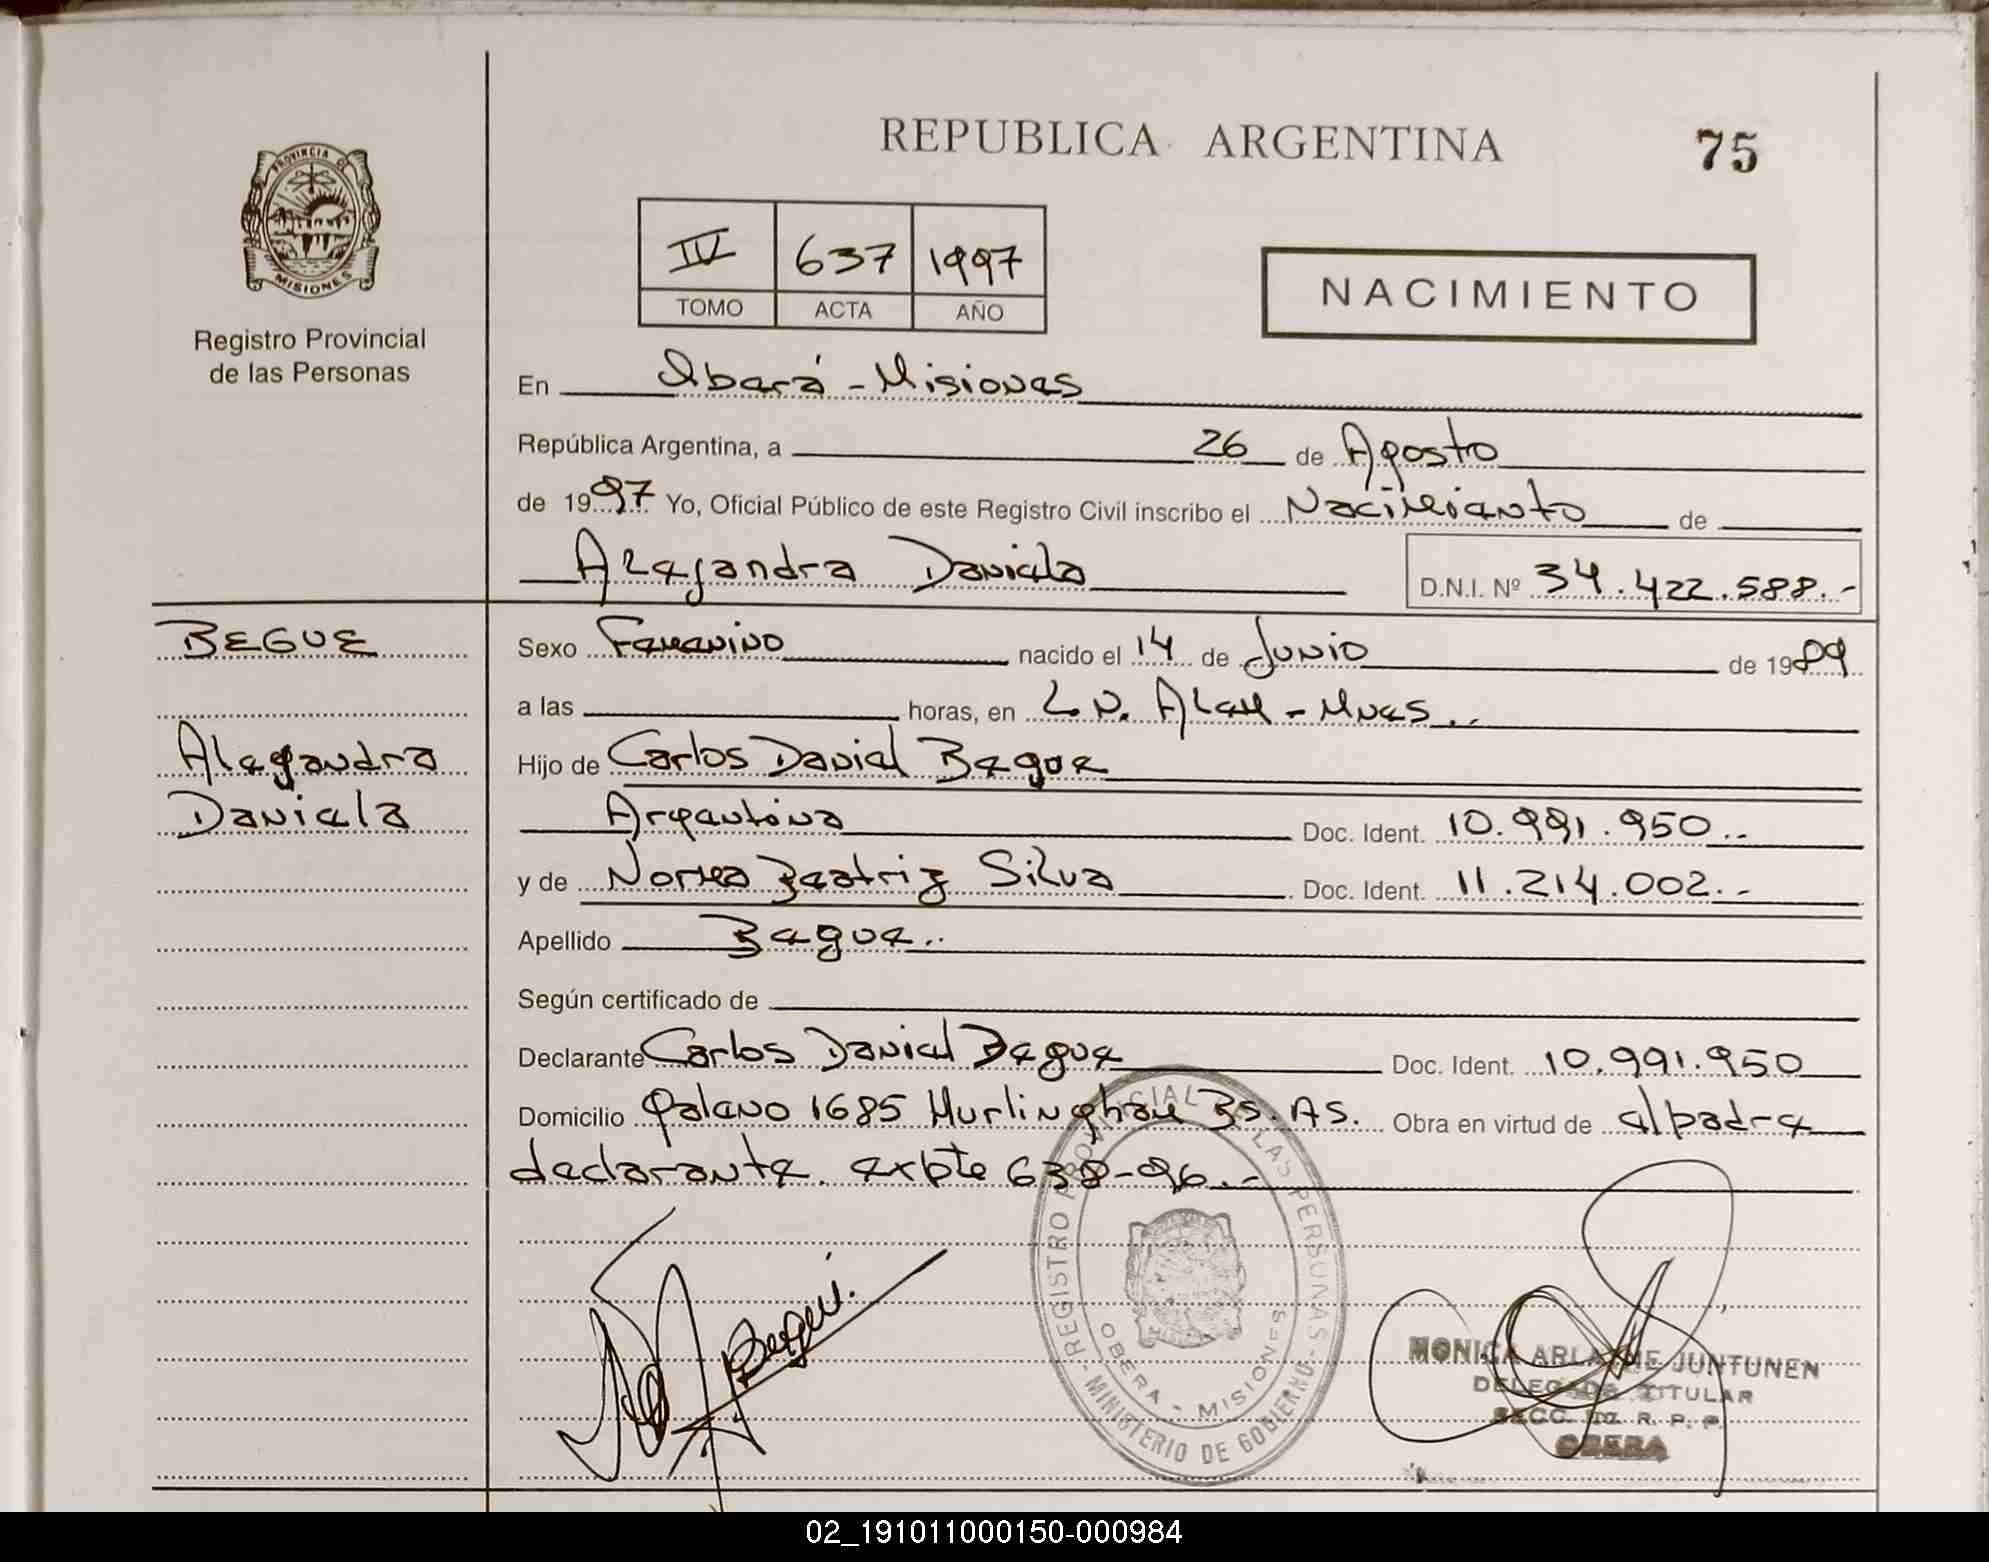 REPUBLICA ARGENTINA 75
PROVINCIA DE
MISIONES
Registro Provincial
de las Personas
IV 637 1997
TOMO ACTA AÑO
NACIMIENTO
En Oberá - Misiones
República Argentina, a 26 de Agosto
de 1997 Yo, Oficial Público de este Registro Civil inscribo el Nacimiento de
Alejandra Daniela D.N.I. Nº 34.422.588.-
BEGUE
Alejandra
Daniela
Sexo Femenino nacido el 14 de Junio de 1989
a las horas, en L.N. Alem - Mnes..
Hijo de Carlos Daniel Begue
Argentina Doc. Ident. 10.991.950..
y de Norma Beatriz Silva Doc. Ident. 11.214.002.-
Apellido Begue..
Según certificado de
Declarante Carlos Daniel Begue Doc. Ident. 10.991.950
Domicilio 1685 Hurlingham Bs. AS. Obra en virtud de el padre
declarante. expte 638-96.-
REGISTRO PROVINCIAL DE LAS PERSONAS
OBERA - MISIONES
MINISTERIO DE GOBIERNO
MONICA JUNTUNEN
DELEGADA TITULAR
SECC. R. P. P.
OBERA
02_191011000150-000984